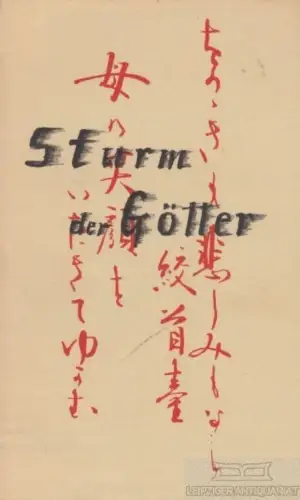 をのゝきも悲しみもなし
絞首臺
母の笑顔を
いだきてゆかむ
Sturm
der Götter
LEIPZIGER ANTIQUARIAT